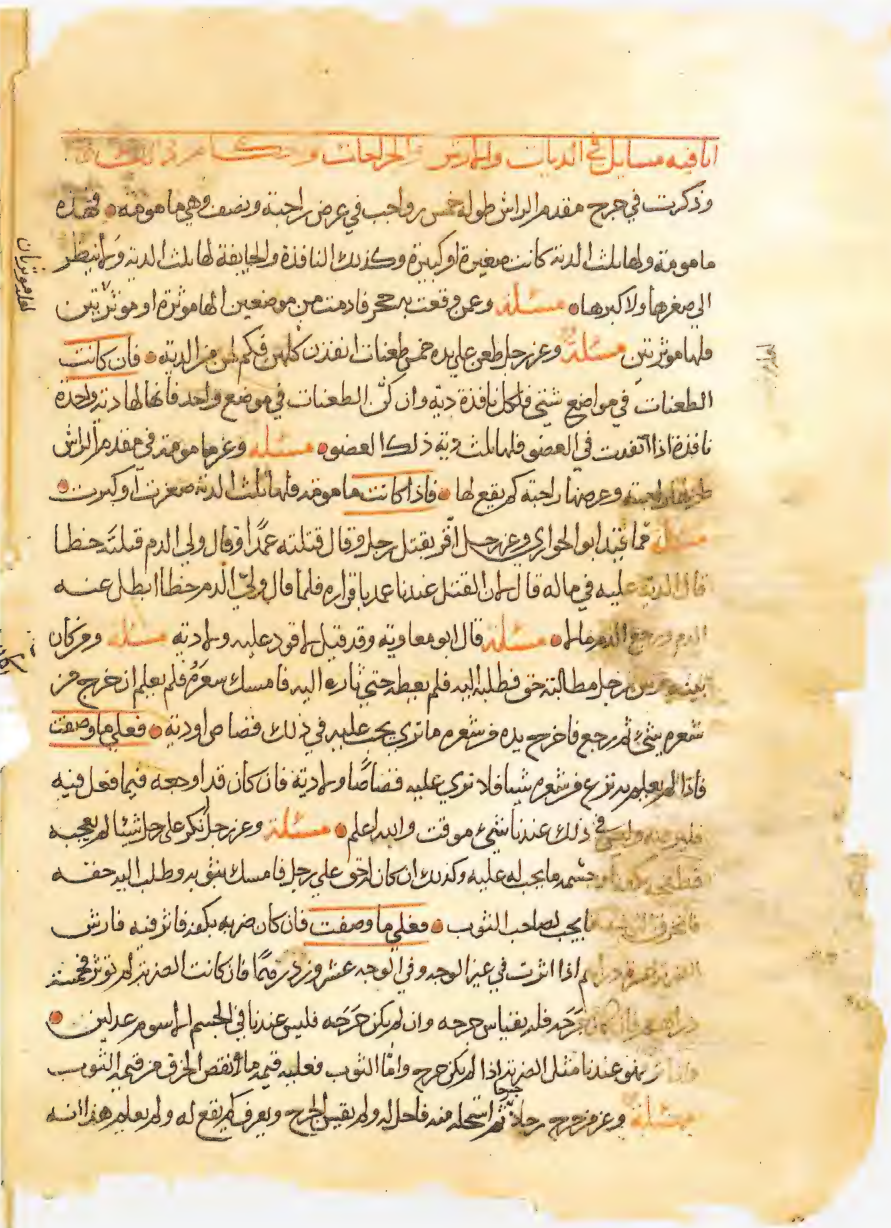 فيه مسايل في الديات والارش والجراحات و
وذكرت في جرح مقدم الراس طوله خمس رواجب في عرض راجبة ونصف وهي مامومة فهذه
مامومة ولها ثلث الدية كانت صغيرة او كبيرة وكذلك النافذة والجايفة لها ثلث الدية ولا ينظر
الى صغرها ولا كبرها مسئلة وعمن وقعت به حجر فادمت من موضعين الها موثرة او موثرتين
فلها موثرتين مسئلة وعن رجل طعن على يده خمس طعنات انفذن كلهن فكم لهن من الدية فان كانت
الطعنات في مواضع شتى فلكل نافذة دية وان كن الطعنات في موضع واحد فانها لها دية واحدة
نافذة اذا انفذت في العضو فلها ثلث دية ذلك العضو مسئلة وعن مامومة في مقدم الراس
طولها راجبة وعرضها راجبة كم يقع لها فاذا كانت مامومة فلها ثلث الدية صغرت او كبرت
مسئلة مما قيد ابو الحواري وعن رجل اقر بقتل رجل وقال قتلته عمدا وقال ولي الدم قتلته خطا
قال الدية عليه في ماله قال لان القتل عندنا عمد باقراره فلما قال ولي الدم خطا ابطل عنه
الدم ورجع الدم مالا مسئلة قال ابو معاوية وقد قيل لا قود عليه ولا دية مسئلة ومن كان
بينه وبين رجل مطالبة حق فطلبه اليه فلم يعطه حتى ثاره اليه فامسك شعره فلم يعلم انه خرج من
شعره شيء ثم رجع فاخرج يده من شعره ما ترى يجب عليه في ذلك قصاص او دية فعلى ما وصفت
فاذا لم يعلم به نزع من شعره شيا فلا نرى عليه قصاصا ولا دية فان كان قد اوجعه فيما فعل فيه
فليرضه وليس في ذلك عندنا شيء موقت والله اعلم مسئلة وعن رجل انكر على رجل شيئا لم يعجبه
ما يجب له عليه وكذلك ان كان له حق على رجل فامسك بثوبه وطلب اليه حقه
فانخرق الثوب ما يجب لصاحب الثوب فعلى ما وصفت فان كان ضربه بكفه فاثر فيه فارش
الضربة اذا اثرت في غير الوجه وفي الوجه عشرون درهما فان كانت الضربة لم توثر فخمسة
دراهم فان كان جرحه فله بقياس جرحه وان لم يكن جرحه فليس عندنا في الجسم الا سوم عدلين
عندنا مثل الضربة اذا لم يكن جرح واما الثوب فعليه قيمة ما انقص الخرق من قيمة الثوب
مسئلة وعن من جرح رجلا جرحا ثم استحله منه فاحل له ولم يقس الجرح ويعرف كم يقع له ولم يعلم هذا انه
لها موثرتان